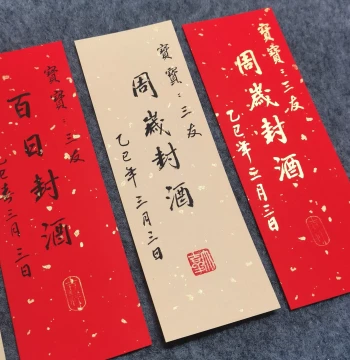 寶寶：三友
百日封酒
乙巳年三月三日
寶寶：三友
周歲封酒
乙巳年三月三日
寶寶：三友
周歲封酒
乙巳年三月三日